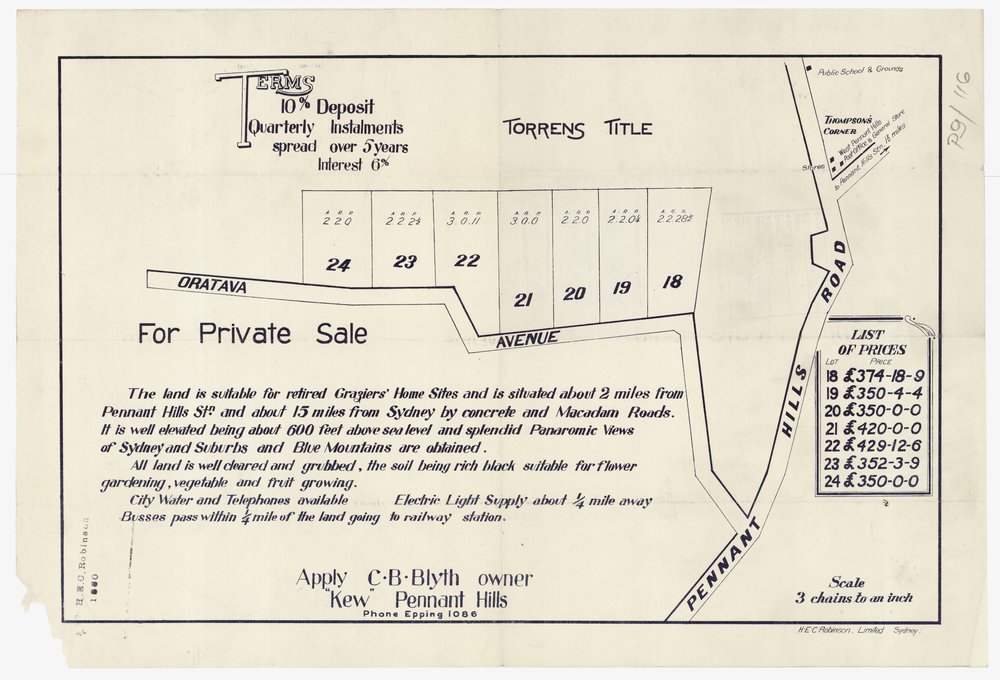 TERMS
10% Deposit
Quarterly Instalments
spread over 5 years
Interest 6%
TORRENS TITLE
Public School & Grounds
THOMPSON'S
CORNER
West Pennant Hills
Post Office & General Store
Stores
to Pennant Hills Stn. 1¾ miles
P9/116
A. R. P. A. R. P. A. R. P. A. R. P. A. R. P. A. R. P. A. R. P.
2 2 0 2. 2. 2½ 3. 0. 11 3. 0. 0 2. 2. 0 2. 2. 0¼ 2. 2. 28½
24 23 22 21 20 19 18
ORATAVA AVENUE
PENNANT HILLS ROAD
For Private Sale
LIST
OF PRICES
LOT PRICE
18 £374-18-9
19 £350-4-4
20 £350-0-0
21 £420-0-0
22 £429-12-6
23 £352-3-9
24 £350-0-0
The land is suitable for retired Graziers' Home Sites and is situated about 2 miles from
Pennant Hills Stn. and about 15 miles from Sydney by concrete and Macadam Roads.
It is well elevated being about 600 feet above sea level and splendid Panaromic Views
of Sydney and Suburbs and Blue Mountains are obtained.
All land is well cleared and grubbed, the soil being rich black suitable for flower
gardening, vegetable and fruit growing.
City Water and Telephones available Electric Light Supply about ¼ mile away
Busses pass within ¼ mile of the land going to railway station.
Apply C·B·Blyth owner
"Kew" Pennant Hills
Phone Epping 1086
Scale
3 chains to an inch
H.E.C. Robinson, Limited Sydney.
H.E.C. Robinson
1880